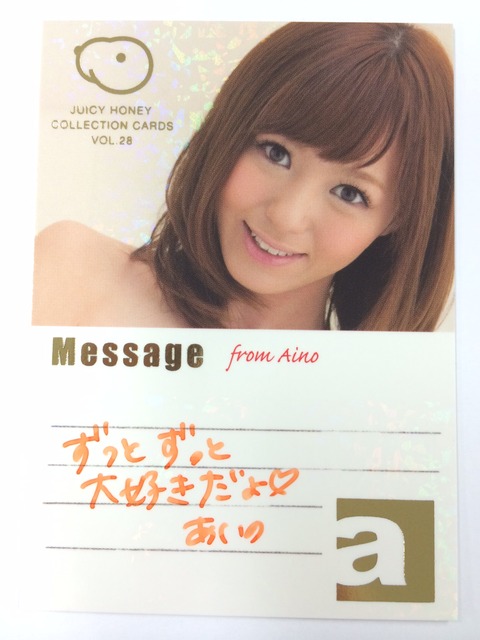 JUICY HONEY
COLLECTION CARDS
VOL.28
Message from Aino
ずっとずっと
大好きだよ♡
あいの
a